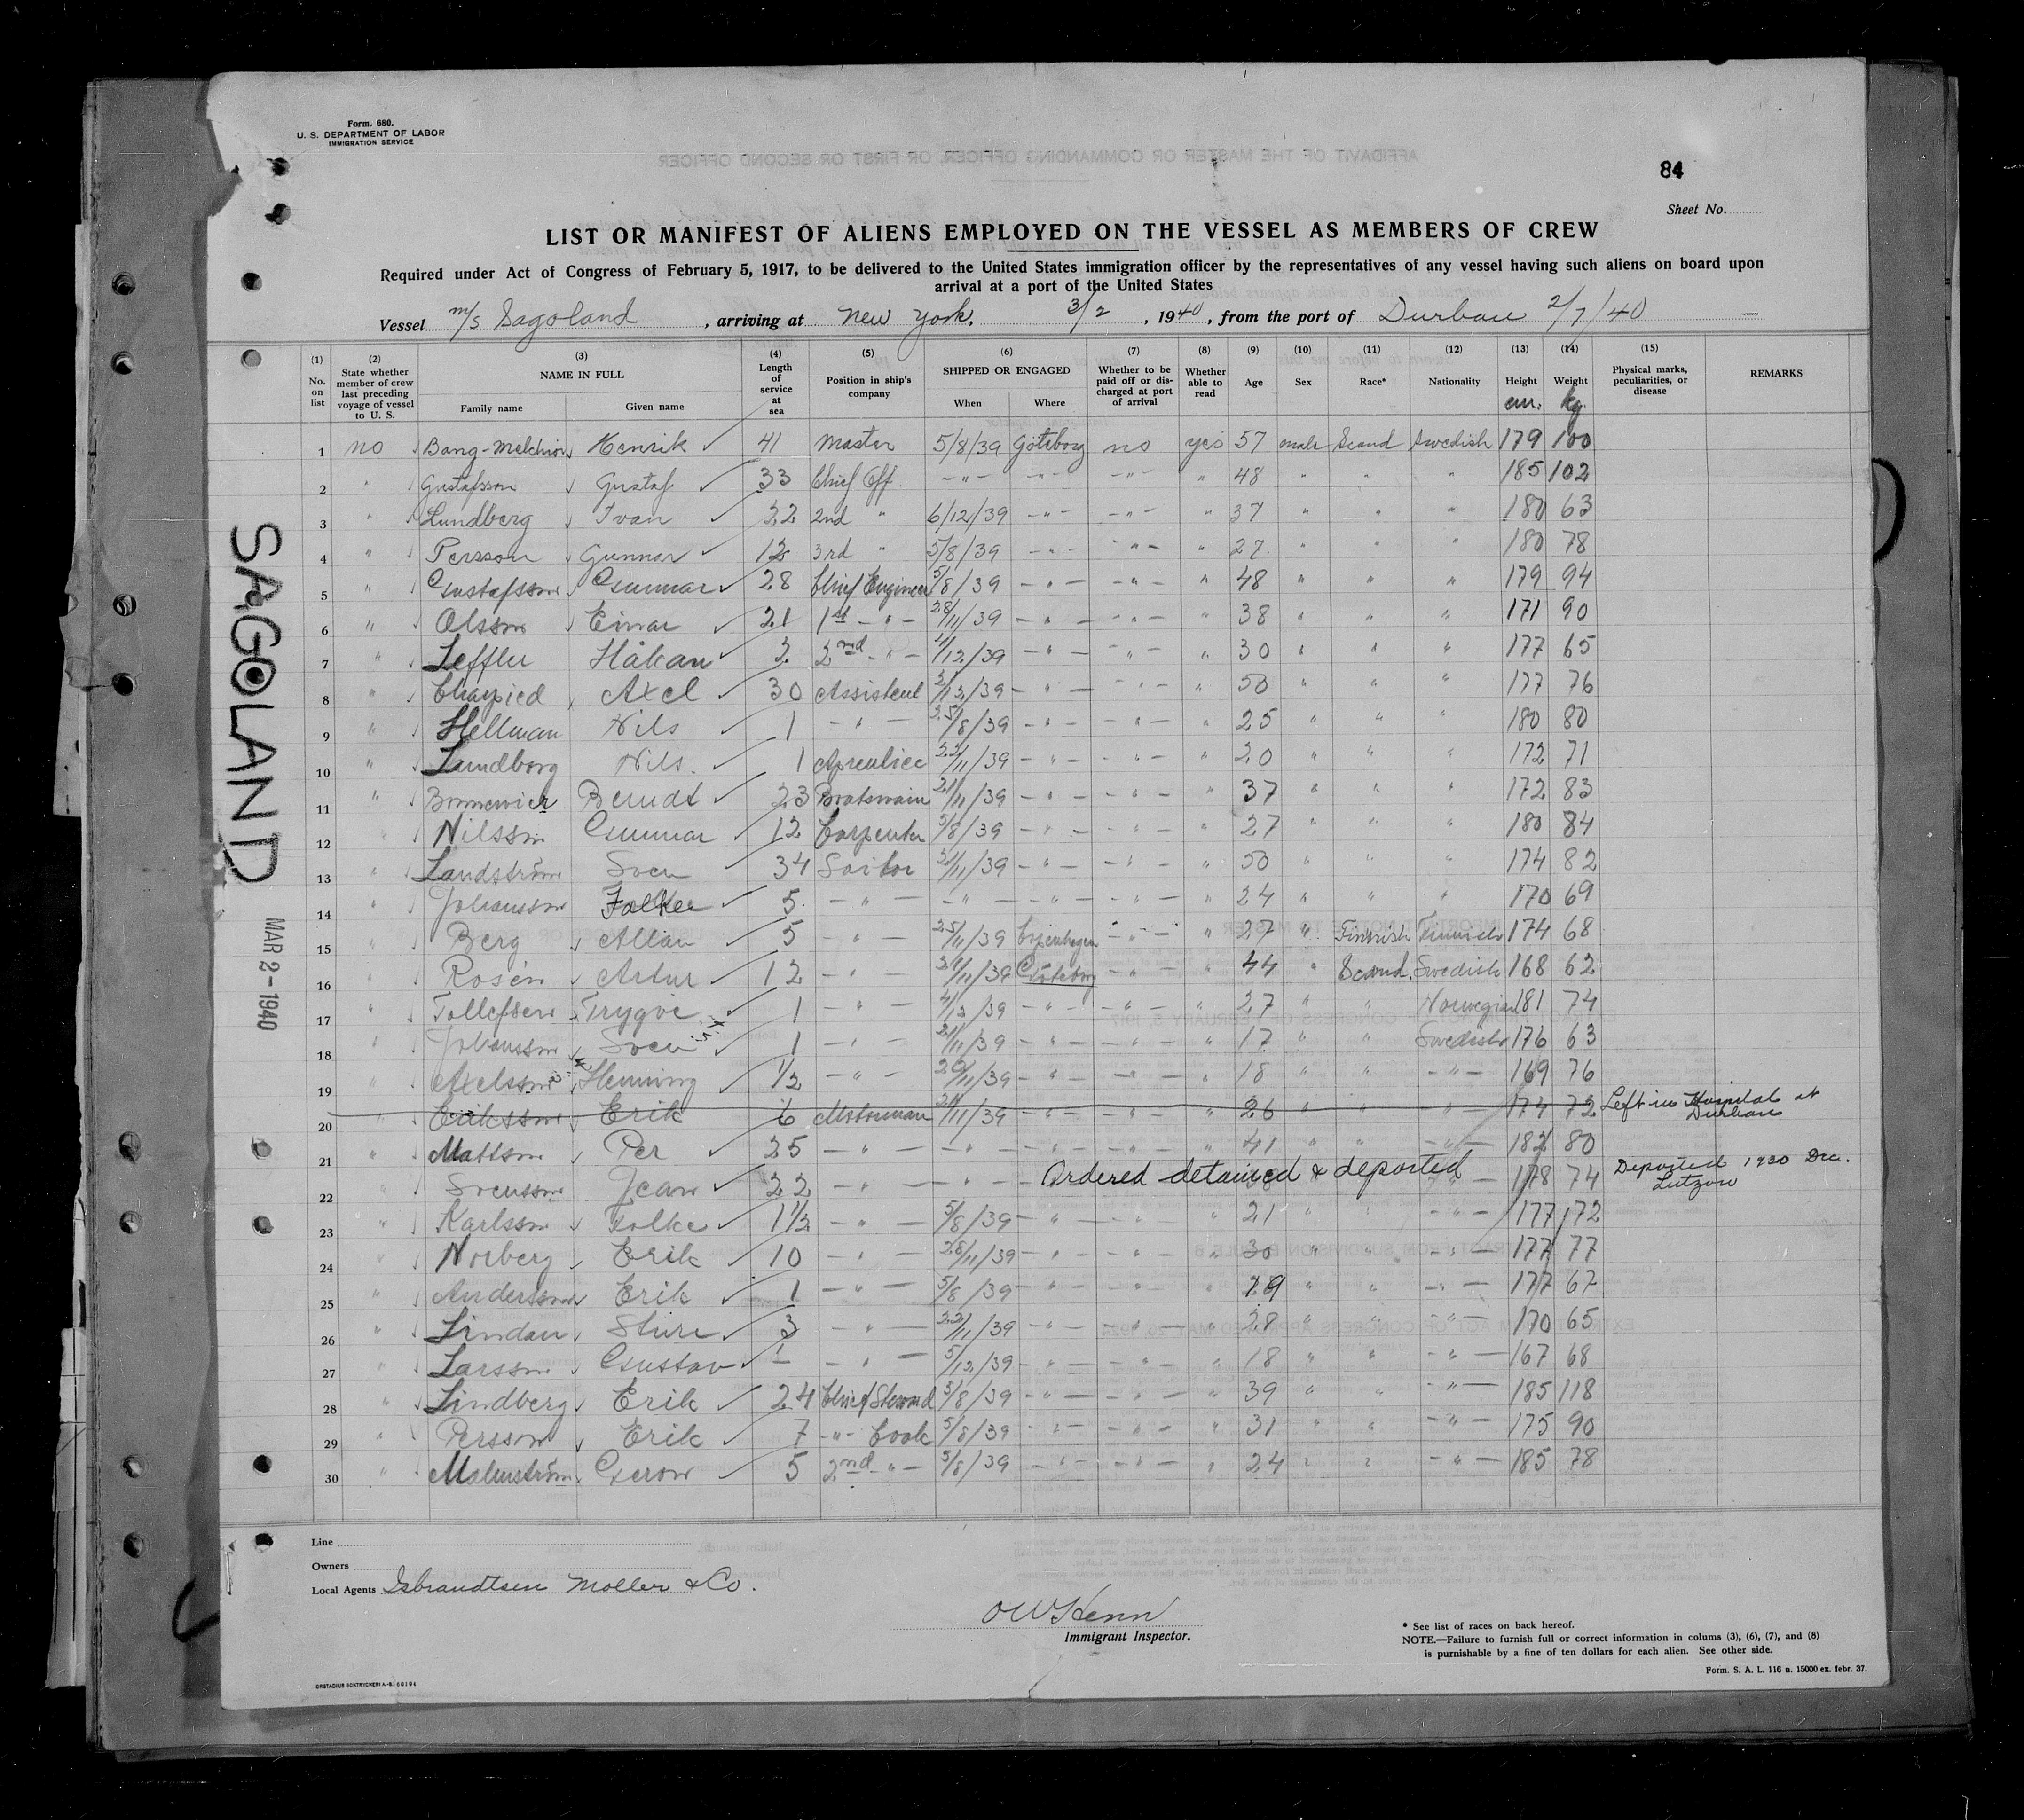 Form. 680.
U. S. DEPARTMENT OF LABOR
IMMIGRATION SERVICE
84
Sheet No.
LIST OR MANIFEST OF ALIENS EMPLOYED ON THE VESSEL AS MEMBERS OF CREW
Required under Act of Congress of February 5, 1917, to be delivered to the United States immigration officer by the representatives of any vessel having such aliens on board upon
arrival at a port of the United States
Vessel m/s Sagoland, arriving at New York, 3/2, 1940, from the port of Durban 2/7/40
(1) No. on list (2) State whether member of crew last preceding voyage of vessel to U. S. (3) NAME IN FULL Family name Given name (4) Length of service at sea (5) Position in ship's company (6) SHIPPED OR ENGAGED When Where (7) Whether to be paid off or discharged at port of arrival (8) Whether able to read (9) Age (10) Sex (11) Race* (12) Nationality (13) Height cm. (14) Weight kg. (15) Physical marks, peculiarities, or disease REMARKS
1 no Bang-Melchior Henrik 41 Master 5/8/39 Göteborg no yes 57 male Scand Swedish 179 100
2 " Gustafsson Gustaf 33 Chief Off. -"- -"- -"- " 48 " " " 185 102
3 " Lundberg Ivan 22 2nd " 6/12/39 -"- -"- " 37 " " " 180 63
4 " Persson Gunnar 12 3rd " 5/8/39 -"- -"- " 27 " " " 180 78
5 " Gustafsson Gunnar 28 Chief Engineer 5/8/39 -"- -"- " 48 " " " 179 94
6 " Olsson Einar 21 1st -"- 28/11/39 -"- -"- " 38 " " " 171 90
7 " Leffler Håkan 2 2nd -"- /12/39 -"- -"- " 30 " " " 177 65
8 " Axel 30 Assistent 2/12/39 -"- -"- " 50 " " " 177 76
9 " Hellman Nils 1 -"- 25/8/39 -"- -"- " 25 " " " 180 80
10 " Lundborg Nils 1 Aprentice 22/11/39 -"- -"- " 20 " " " 172 71
11 " Berndt 23 Boatswain 21/11/39 -"- -"- " 37 " " " 172 83
12 " Nilsson Gunnar 12 Carpenter 5/8/39 -"- -"- " 27 " " " 180 84
13 " Landström Sven 34 Sailor 21/11/39 -"- -"- " 50 " " " 174 82
14 " Johansson Folke 5 -"- -"- -"- -"- " 24 " " " 170 69
15 " Berg Allan 5 -"- 25/11/39 Copenhagen -"- " 27 " Finnish Finnish 174 68
16 " Rosén Artur 12 -"- 21/11/39 Göteborg -"- " 44 " Scand. Swedish 168 62
17 " Tollefsen Trygve 1 -"- 4/12/39 -"- -"- " 27 " " Norwegian 181 74
18 " Johansson Sven 1 -"- 21/11/39 -"- -"- " 17 " " Swedish 176 63
19 " Axelsson Henning 1/2 -"- 20/11/39 -"- -"- " 18 " " -"- 169 76
20 " Eriksson Erik 6 Motorman 21/11/39 -"- -"- " 26 " " -"- 174 72 Left in Hospital at Durban
21 " Mattson Per 25 -"- -"- -"- -"- " 41 " " -"- 182 80
22 " Svensson Jean 22 -"- -"- Ordered detained & deported 178 74 Deported 1930 Dec. Lutzow
23 " Karlsson Folke 1 1/2 -"- 5/8/39 -"- -"- " 21 " " -"- 177 172
24 " Norberg Erik 10 -"- 28/11/39 -"- -"- " 30 " " -"- 177 77
25 " Andersson Erik 1 -"- 5/8/39 -"- -"- " 19 " " -"- 177 67
26 " Lindau Sture 3 -"- 22/11/39 -"- -"- " 28 " " -"- 170 65
27 " Larsson Gustav - -"- 5/12/39 -"- -"- " 18 " " -"- 167 68
28 " Lindberg Erik 24 Chief Steward 5/8/39 -"- -"- " 39 " " -"- 185 118
29 " Persson Erik 7 -"- Cook 5/8/39 -"- -"- " 31 " " -"- 175 90
30 " Malmström 5 2nd -"- 5/8/39 -"- -"- " 24 " " -"- 185 78
SAGOLAND
MAR 2-1940
Line
Owners
Local Agents Isbrandtsen Moller & Co.
Immigrant Inspector.
* See list of races on back hereof.
NOTE.—Failure to furnish full or correct information in colums (3), (6), (7), and (8)
is punishable by a fine of ten dollars for each alien. See other side.
Form. S. A. L. 116 n. 15000 ex. febr. 37.